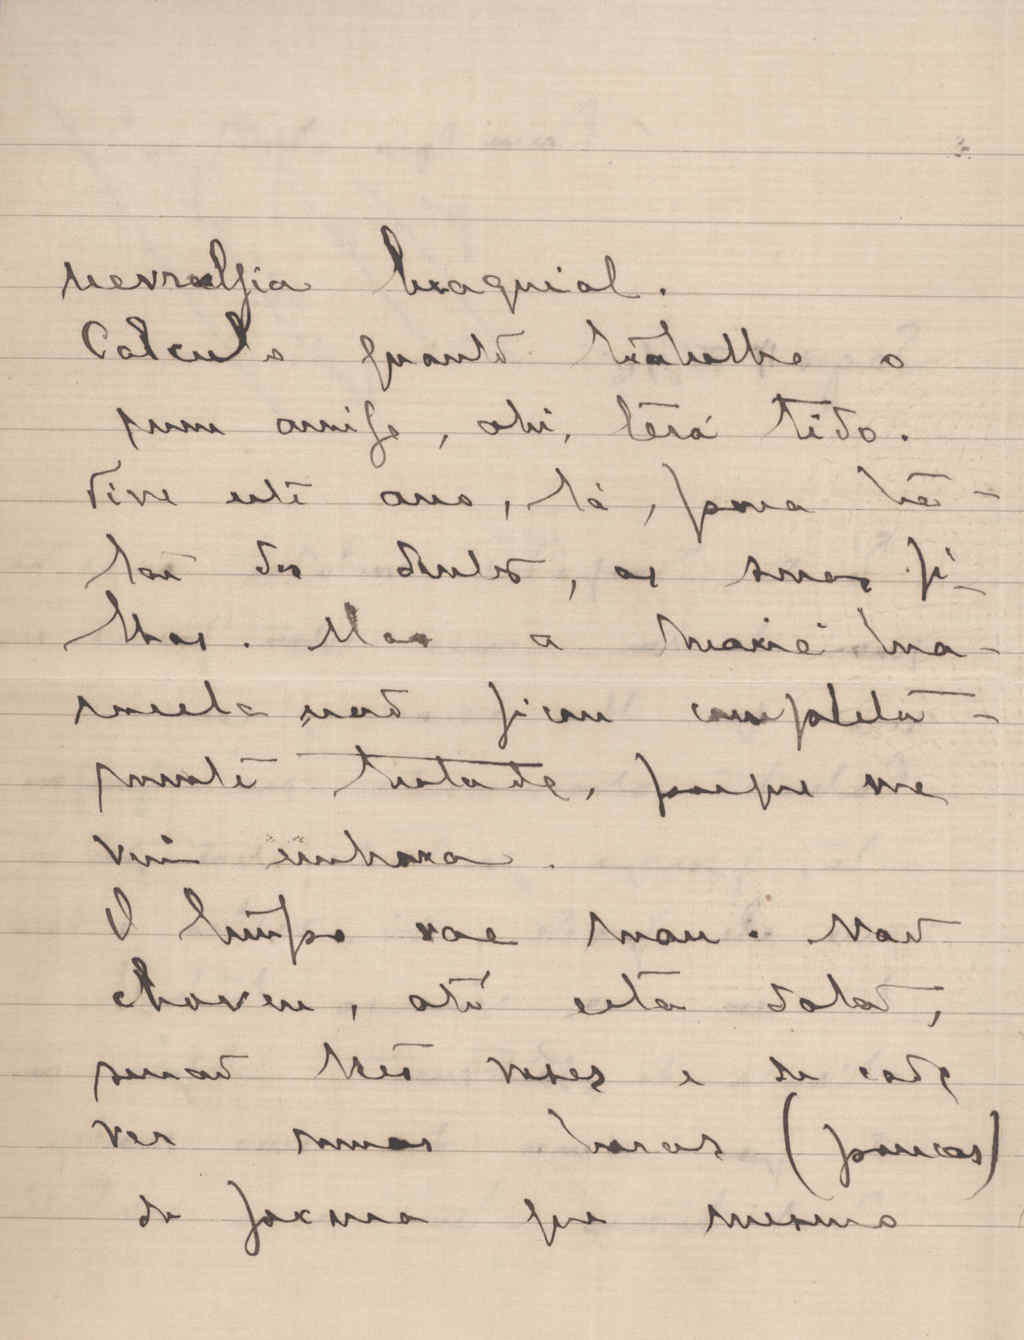 nevralgia braquial.
Calculo quanto trabalho o
meu amigo, ahi, terá tido.
Tive este ano, lá, para tra-
tar dos dentes, as suas fi-
lhas. Mas a Maria Ma-
nuela não ficou completa-
mente tratada, porque me
vim embora.
O tempo vae mau. Não
choveu, até esta data,
senão três vezes e de cada
vez umas horas (poucas)
de forma que mesmo